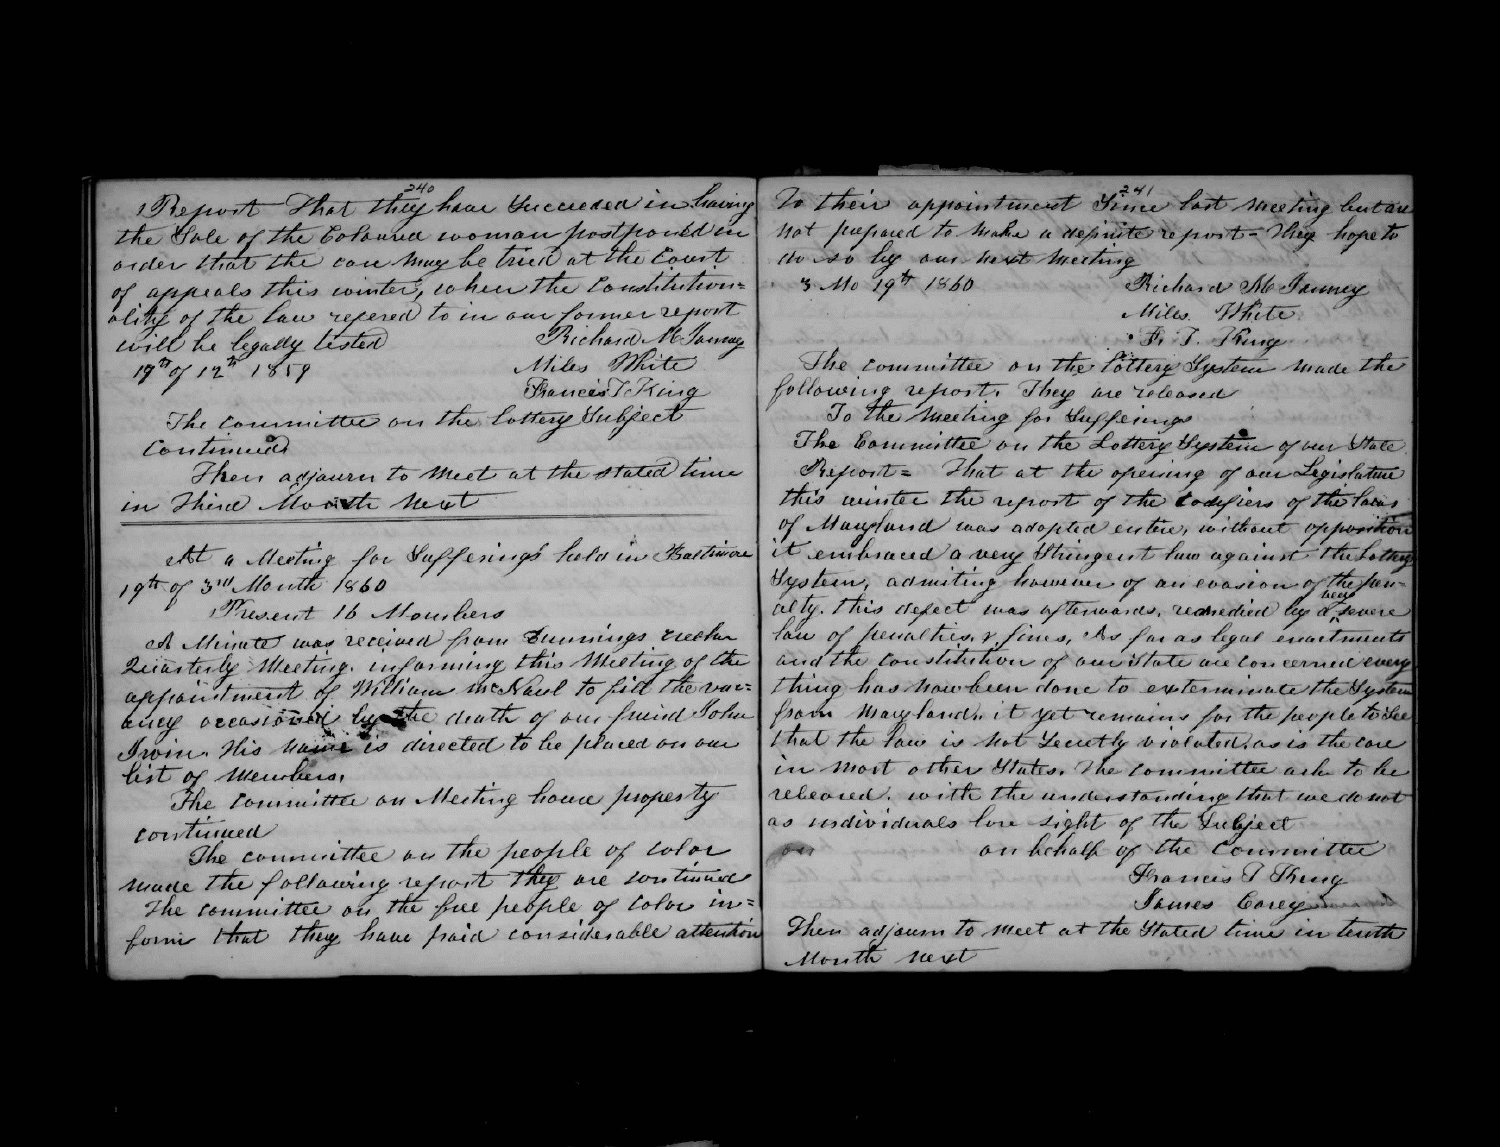 240
Report That they have Succeeded in having
the Sale of the Coloured woman postponed in
order that the case may be tried at the Court
of appeals this winter, when the Constitution=
ality of the law refered to in our former report
will be legally tested Richard M Janney
19th of 12th 1859 Miles White
Francis T King
The committee on the Lottery Subject
Continued
Then adjourn to meet at the stated time
in Third Month Next
At a Meeting for Sufferings held in Baltimore
19th of 3rd Month 1860
Present 16 Members
A Minute was received from Dunnings creek
Quarterly Meeting. informing this Meeting of the
appointment of William McNaul to fill the vac=
ancy occasioned by the death of our friend John
Irwin. His name is directed to be placed on our
list of members.
The committee on Meeting house property
continued
The committee on the people of color
made the following report they are continued
The committee on the free people of color in=
form that they have paid considerable attention
241
To their appointment Since last meeting but are
not prepared to make a definite report = They hope to
do so by our next meeting
3 Mo 19th 1860 Richard M Janney
Miles White
F. T. King
The committee on the Lottery System made the
following report. They are released
To the Meeting for Sufferings
The Committee on the Lottery System of our State
Report = That at the opening of our Legislature
this winter the report of the Codifiers of the laws
of Maryland was adopted entire, without opposition
it embraced a very Stringent law against the Lottery
System, admiting however of an evasion of the pen-
alty. this defect was afterwards, remedied by a very severe
law of penalties, & fines, As far as legal enactments
and the constitution of our State are concerned every
thing has now been done to exterminate the System
from Maryland, it yet remains for the people to See
that the law is not Secretly violated, as is the case
in most other States. The committee ask to be
released. with the understanding that we do not
as individuals lose sight of the Subject
on on behalf of the Committee
Francis T King
James Carey
Then adjourn to meet at the Stated time in tenth
Month next